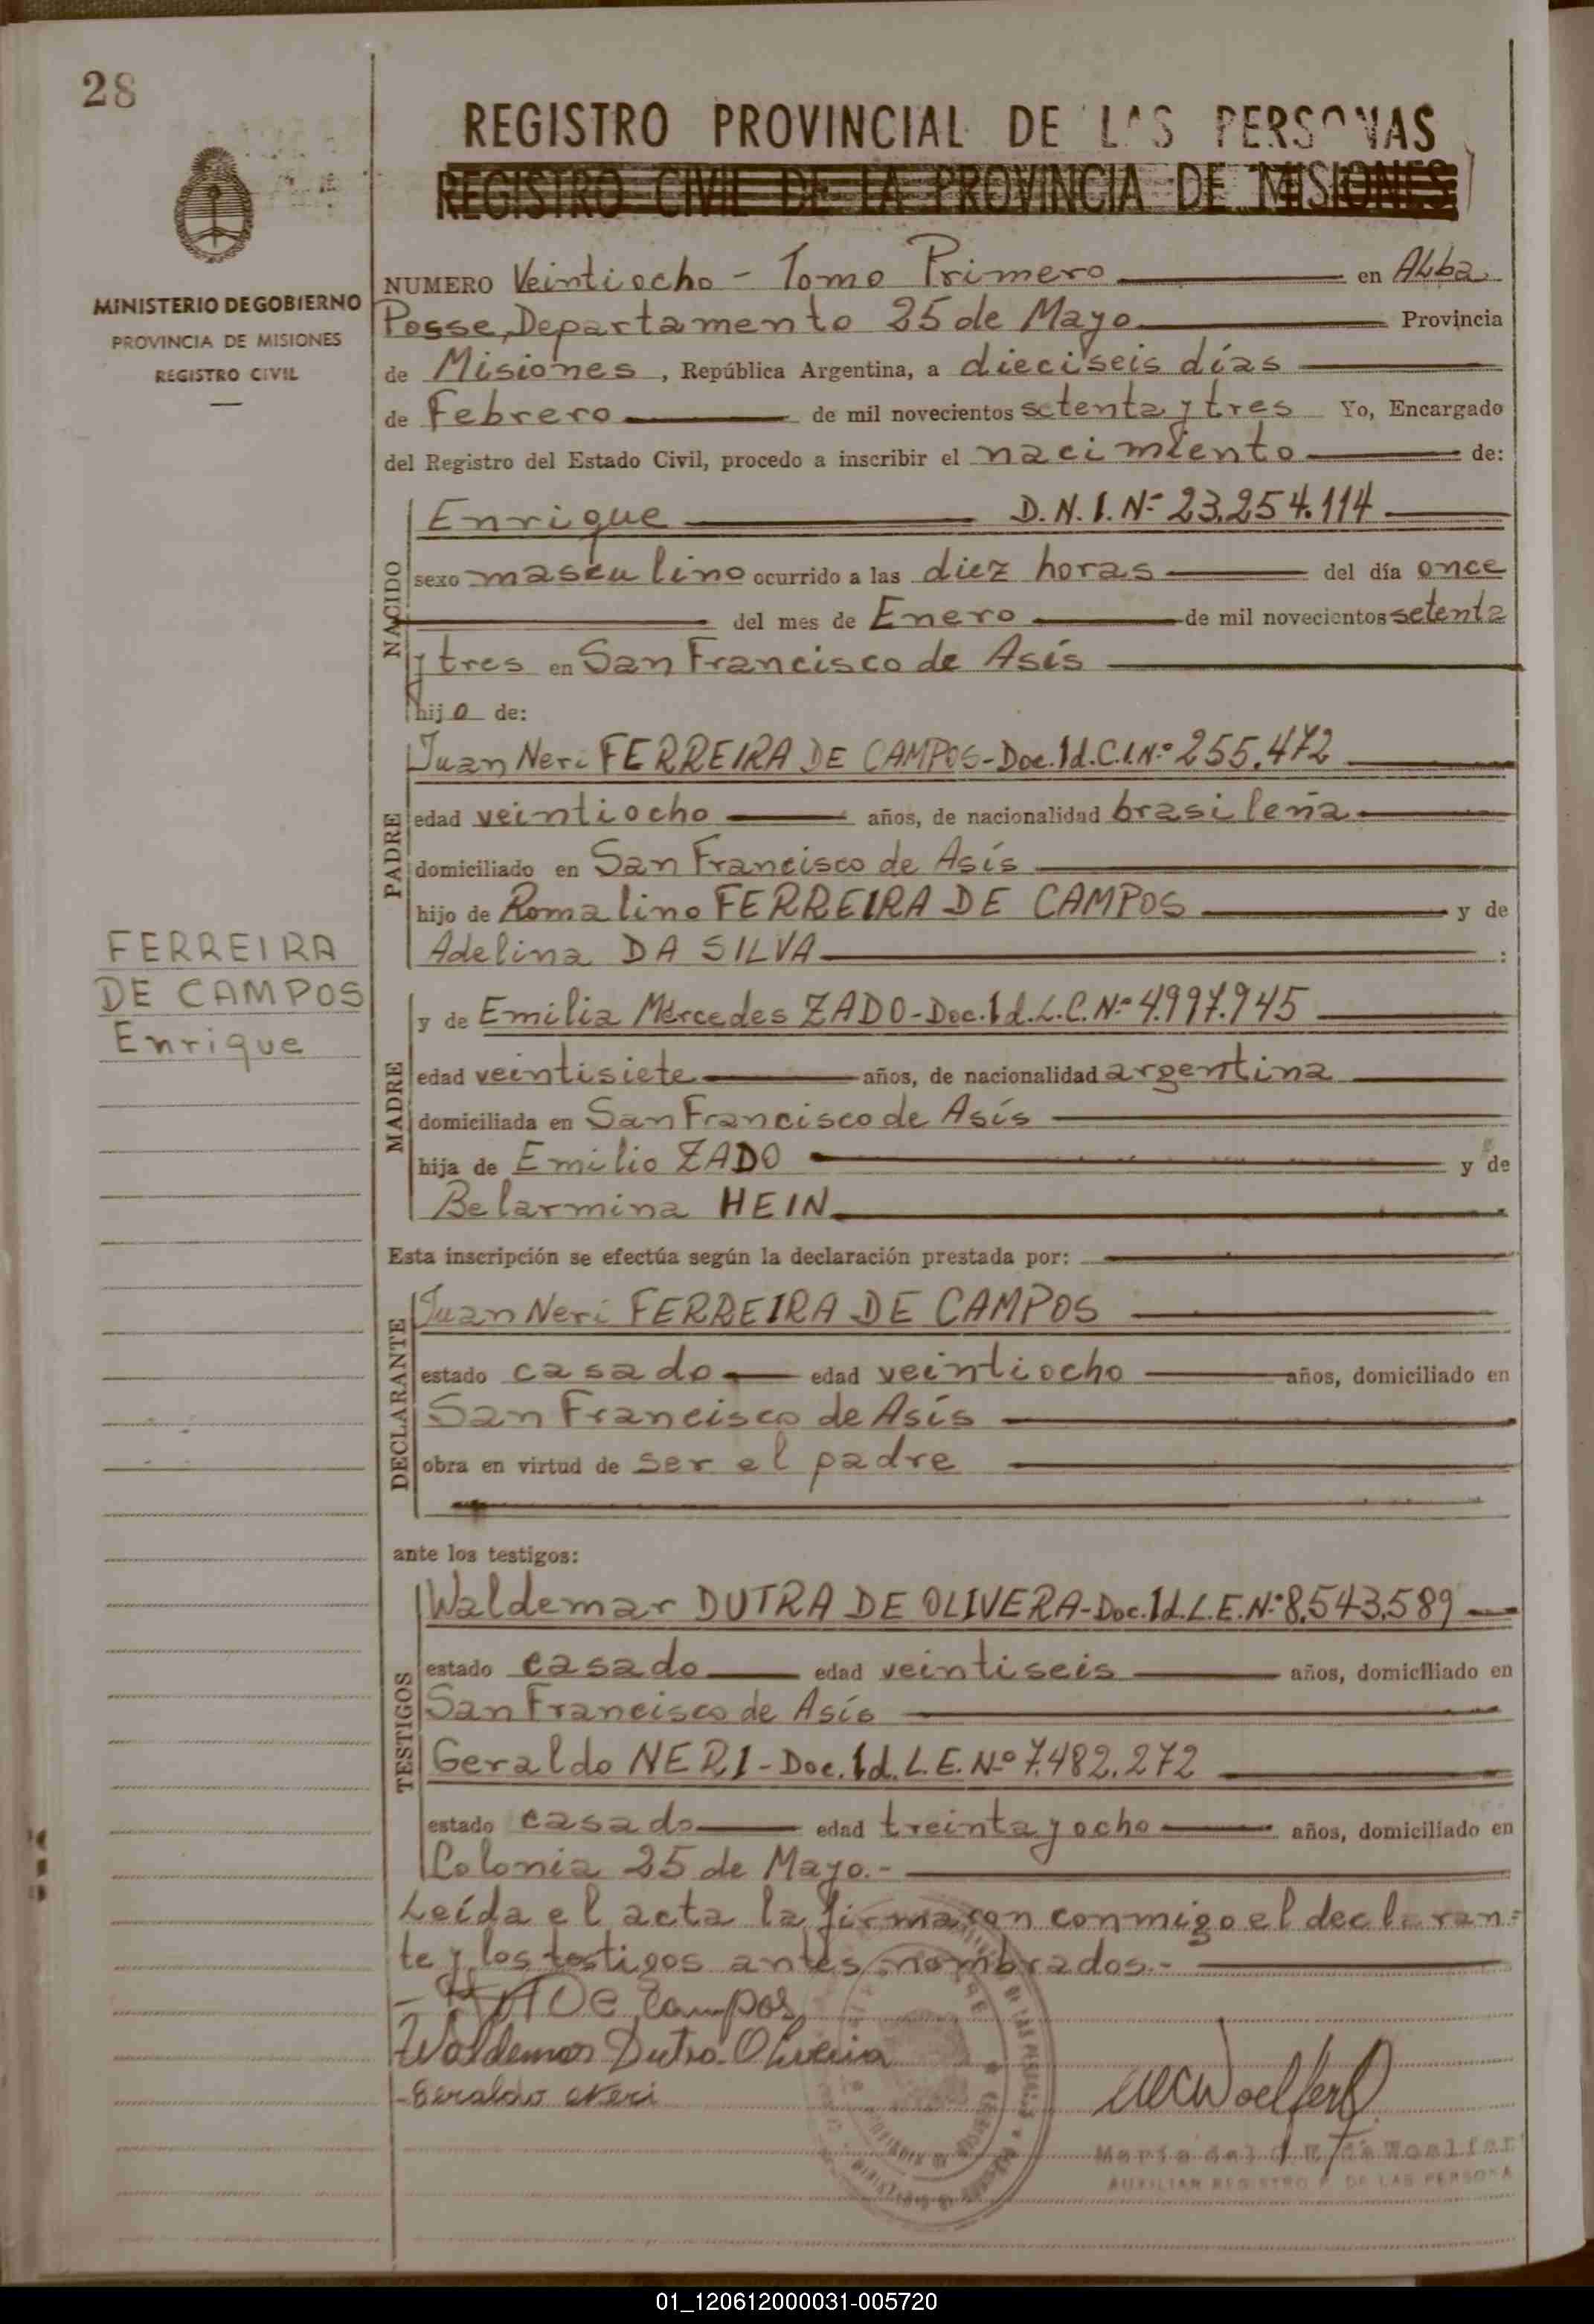 28
MINISTERIO DE GOBIERNO
PROVINCIA DE MISIONES
REGISTRO CIVIL
REGISTRO PROVINCIAL DE LAS PERSONAS
REGISTRO CIVIL DE LA PROVINCIA DE MISIONES
NUMERO Veintiocho - Tomo Primero en Alba
Posse, Departamento 25 de Mayo Provincia
de Misiones, República Argentina, a dieciseis días
de Febrero de mil novecientos setenta y tres Yo, Encargado
del Registro del Estado Civil, procedo a inscribir el nacimiento de:
NACIDO
Enrique D.N.I. Nº 23.254.114
sexo masculino ocurrido a las diez horas del día once
del mes de Enero de mil novecientos setenta
y tres en San Francisco de Asís
hijo de:
PADRE
Juan Neri FERREIRA DE CAMPOS - Doc. Id. C.I. Nº 255.472
edad veintiocho años, de nacionalidad brasileña
domiciliado en San Francisco de Asís
hijo de Romalino FERREIRA DE CAMPOS y de
Adelina DA SILVA :
FERREIRA
DE CAMPOS
Enrique
MADRE
y de Emilia Mercedes ZADO - Doc. Id. L.C. Nº 4.997.945
edad veintisiete años, de nacionalidad argentina
domiciliada en San Francisco de Asís
hija de Emilio ZADO y de
Belarmina HEIN
Esta inscripción se efectúa según la declaración prestada por:
DECLARANTE
Juan Neri FERREIRA DE CAMPOS
estado casado edad veintiocho años, domiciliado en
San Francisco de Asís
obra en virtud de ser el padre
ante los testigos:
TESTIGOS
Waldemar DUTRA DE OLIVERA - Doc. Id. L.E. Nº 8.543.589
estado casado edad veintiseis años, domiciliado en
San Francisco de Asís
Geraldo NERI - Doc. Id. L.E. Nº 7.482.272
estado casado edad treinta y ocho años, domiciliado en
Colonia 25 de Mayo.-
Leída el acta la firmaron conmigo el declaran=
te y los testigos antes nombrados.-
De Campos
Waldemar Dutra Oliveira
- Geraldo Neri
María del de Woelfert
AUXILIAR REGISTRO P. DE LAS PERSONA
01_120612000031-005720